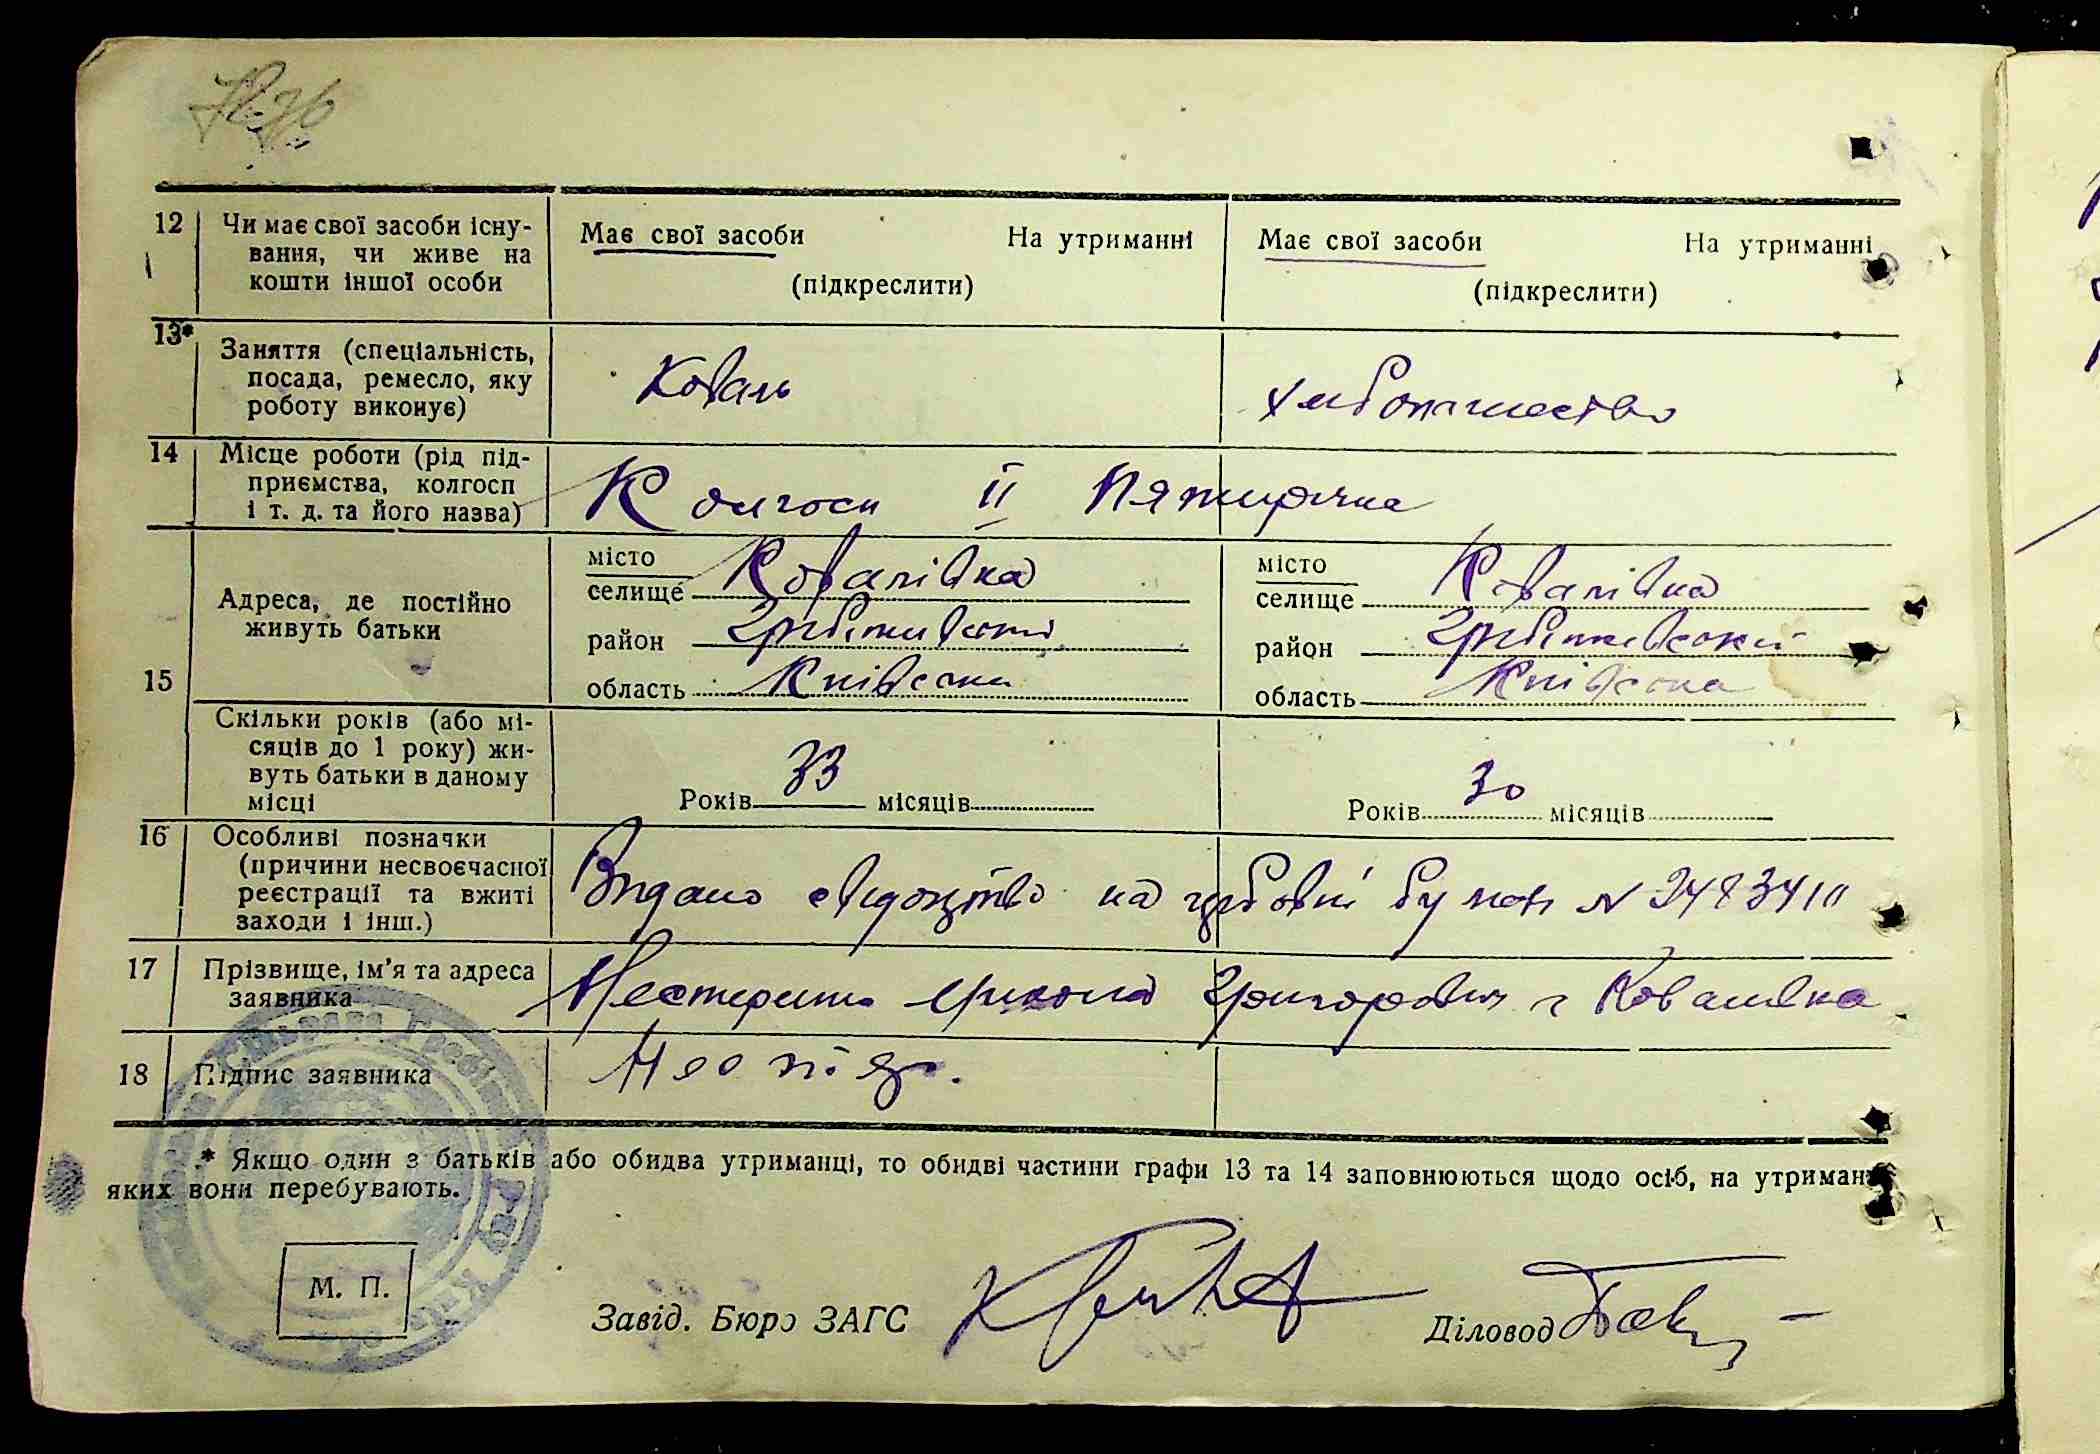 12 Чи має свої засоби існу-
вання, чи живе на
кошти іншої особи
Має свої засоби На утриманні
(підкреслити)
Має свої засоби На утриманні
(підкреслити)
13* Заняття (спеціальність,
посада, ремесло, яку
роботу виконує)
Коваль
14 Місце роботи (рід під-
приємства, колгосп
і т. д. та його назва)
Колгосп ІІ Пятирічка
15 Адреса, де постійно
живуть батьки
місто
селище Ковалівка
район
область Київська
місто
селище Ковалівка
район
область Київська
Скільки років (або мі-
сяців до 1 року) жи-
вуть батьки в даному
місці
Років 33 місяців
Років 30 місяців
16 Особливі позначки
(причини несвоєчасної
реєстрації та вжиті
заходи і інш.)
Видано свідоцтво на гербовій бумазі №
17 Прізвище, ім'я та адреса
заявника
Григорович с Ковалівка
18 Підпис заявника
* Якщо один з батьків або обидва утриманці, то обидві частини графи 13 та 14 заповнюються щодо осіб, на утриман
яких вони перебувають.
М. П.
Завід. Бюро ЗАГС
Діловод